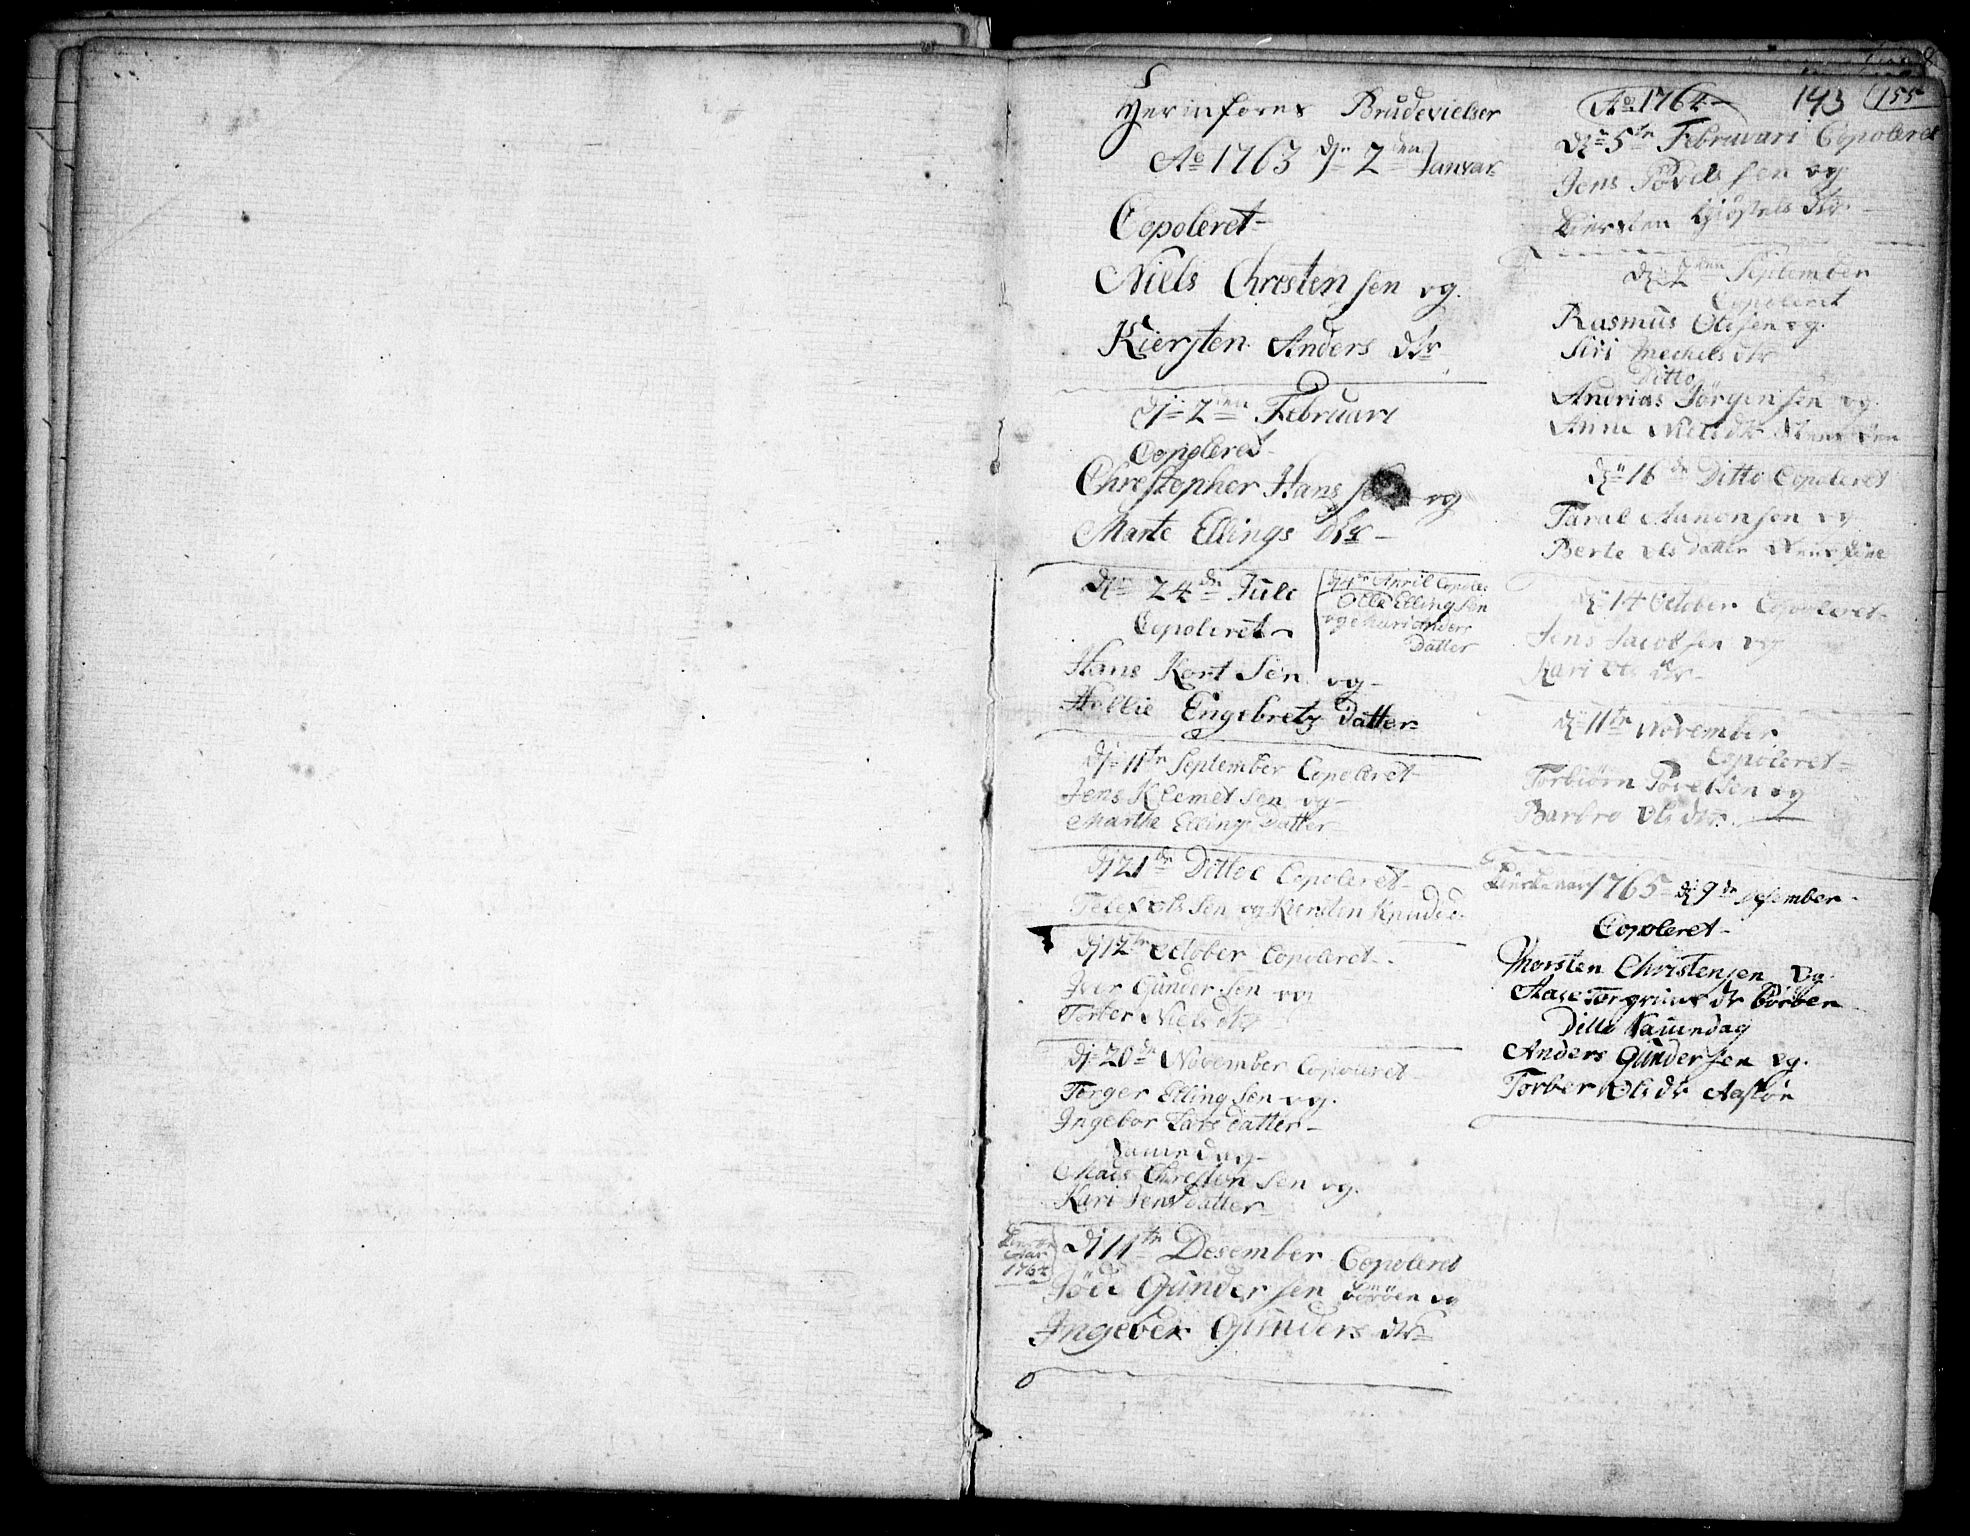 Her inføres Brudevielser
Ao 1763 dn 2den Januar
Copoleret
Niels Chresten sen og
Kiersten Anders dtr
dn 2den Februari
Copoleret
Christopher Hans sen og
Marte Ellings dtr
dn 24de Juli
Copoleret
dn April Copoler
Olle Elling Sen
og Kari Anders
Datter
Hans Kort Sen og
Engebretz Datter
dn 11te September Copoleret
Jens Klemet Sen og
Marthe Elling Datter
dn 21de Dittoe Copoleret
Ols Sen og Kiersten Knuds
dn 12te October Copoleret
Iver Gunder Sen og
Torber Niels dtr
dn 20de November Copoleret
Torger Elling Sen og
Ingebor Lars datter
Samedag
Mads Chresten Sen og
Kari Jens datter
1764
dn 11te Desember Copoleret
Gunder sen og
Ingebor Gunders dtr
143 155
Ao 1764
dn 5te Februari Copoleret
Jens Povels sen og
Kiersten dtr
dn September
Copoleret
Rasmus Olesen og
Siri Mechels dtr
Ditto
Andrias Jørgensen og
Anne Niels dtr
dn 16de Ditto Copoleret
Taral Aanonsen og
Berte Ols datter
dn 14 October Copoleret
Jens Jacobsen og
Kari Ols dtr
dn 11te November
Copoleret
Torbiørn Povelsen og
Barbro Ols dtr
1765 dn 9de Desember
Copoleret
Thorsten Christensen og
Aase Torgrims dr
Ditto Samedag
Anders Gundersen og
Torber Ols dr